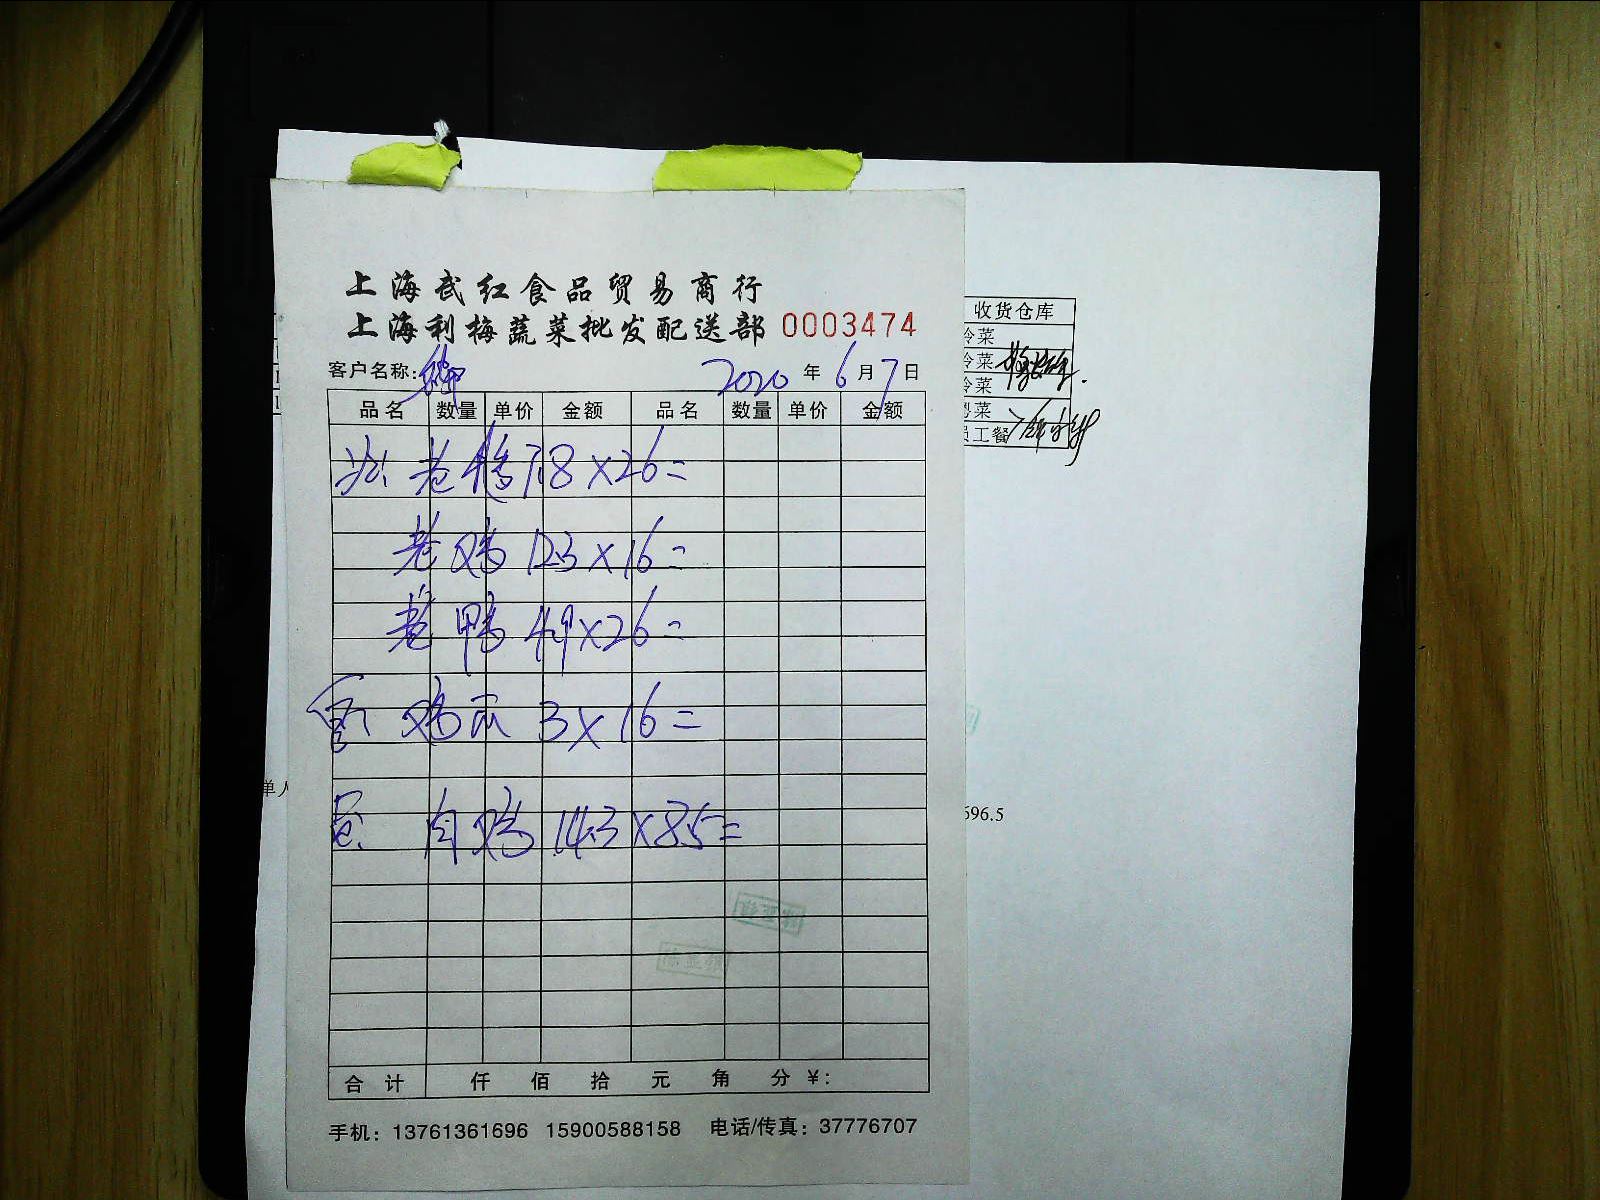 上海武红食品贸易商行
上海利梅蔬菜批发配送部 0003474
客户名称: 2020 年 6 月 7 日
品名 数量 单价 金额 品名 数量 单价 金额
老鸭 7.8×26=
老鸡 12.3×16=
老鸭 4.9×26=
鸡爪 3×16=
肉鸡 14.3×8.5=
合计 仟 佰 拾 元 角 分 ¥:
手机: 13761361696 15900588158 电话/传真: 37776707
收货仓库
冷菜
冷菜
冷菜
菜
员工餐
单人
696.5